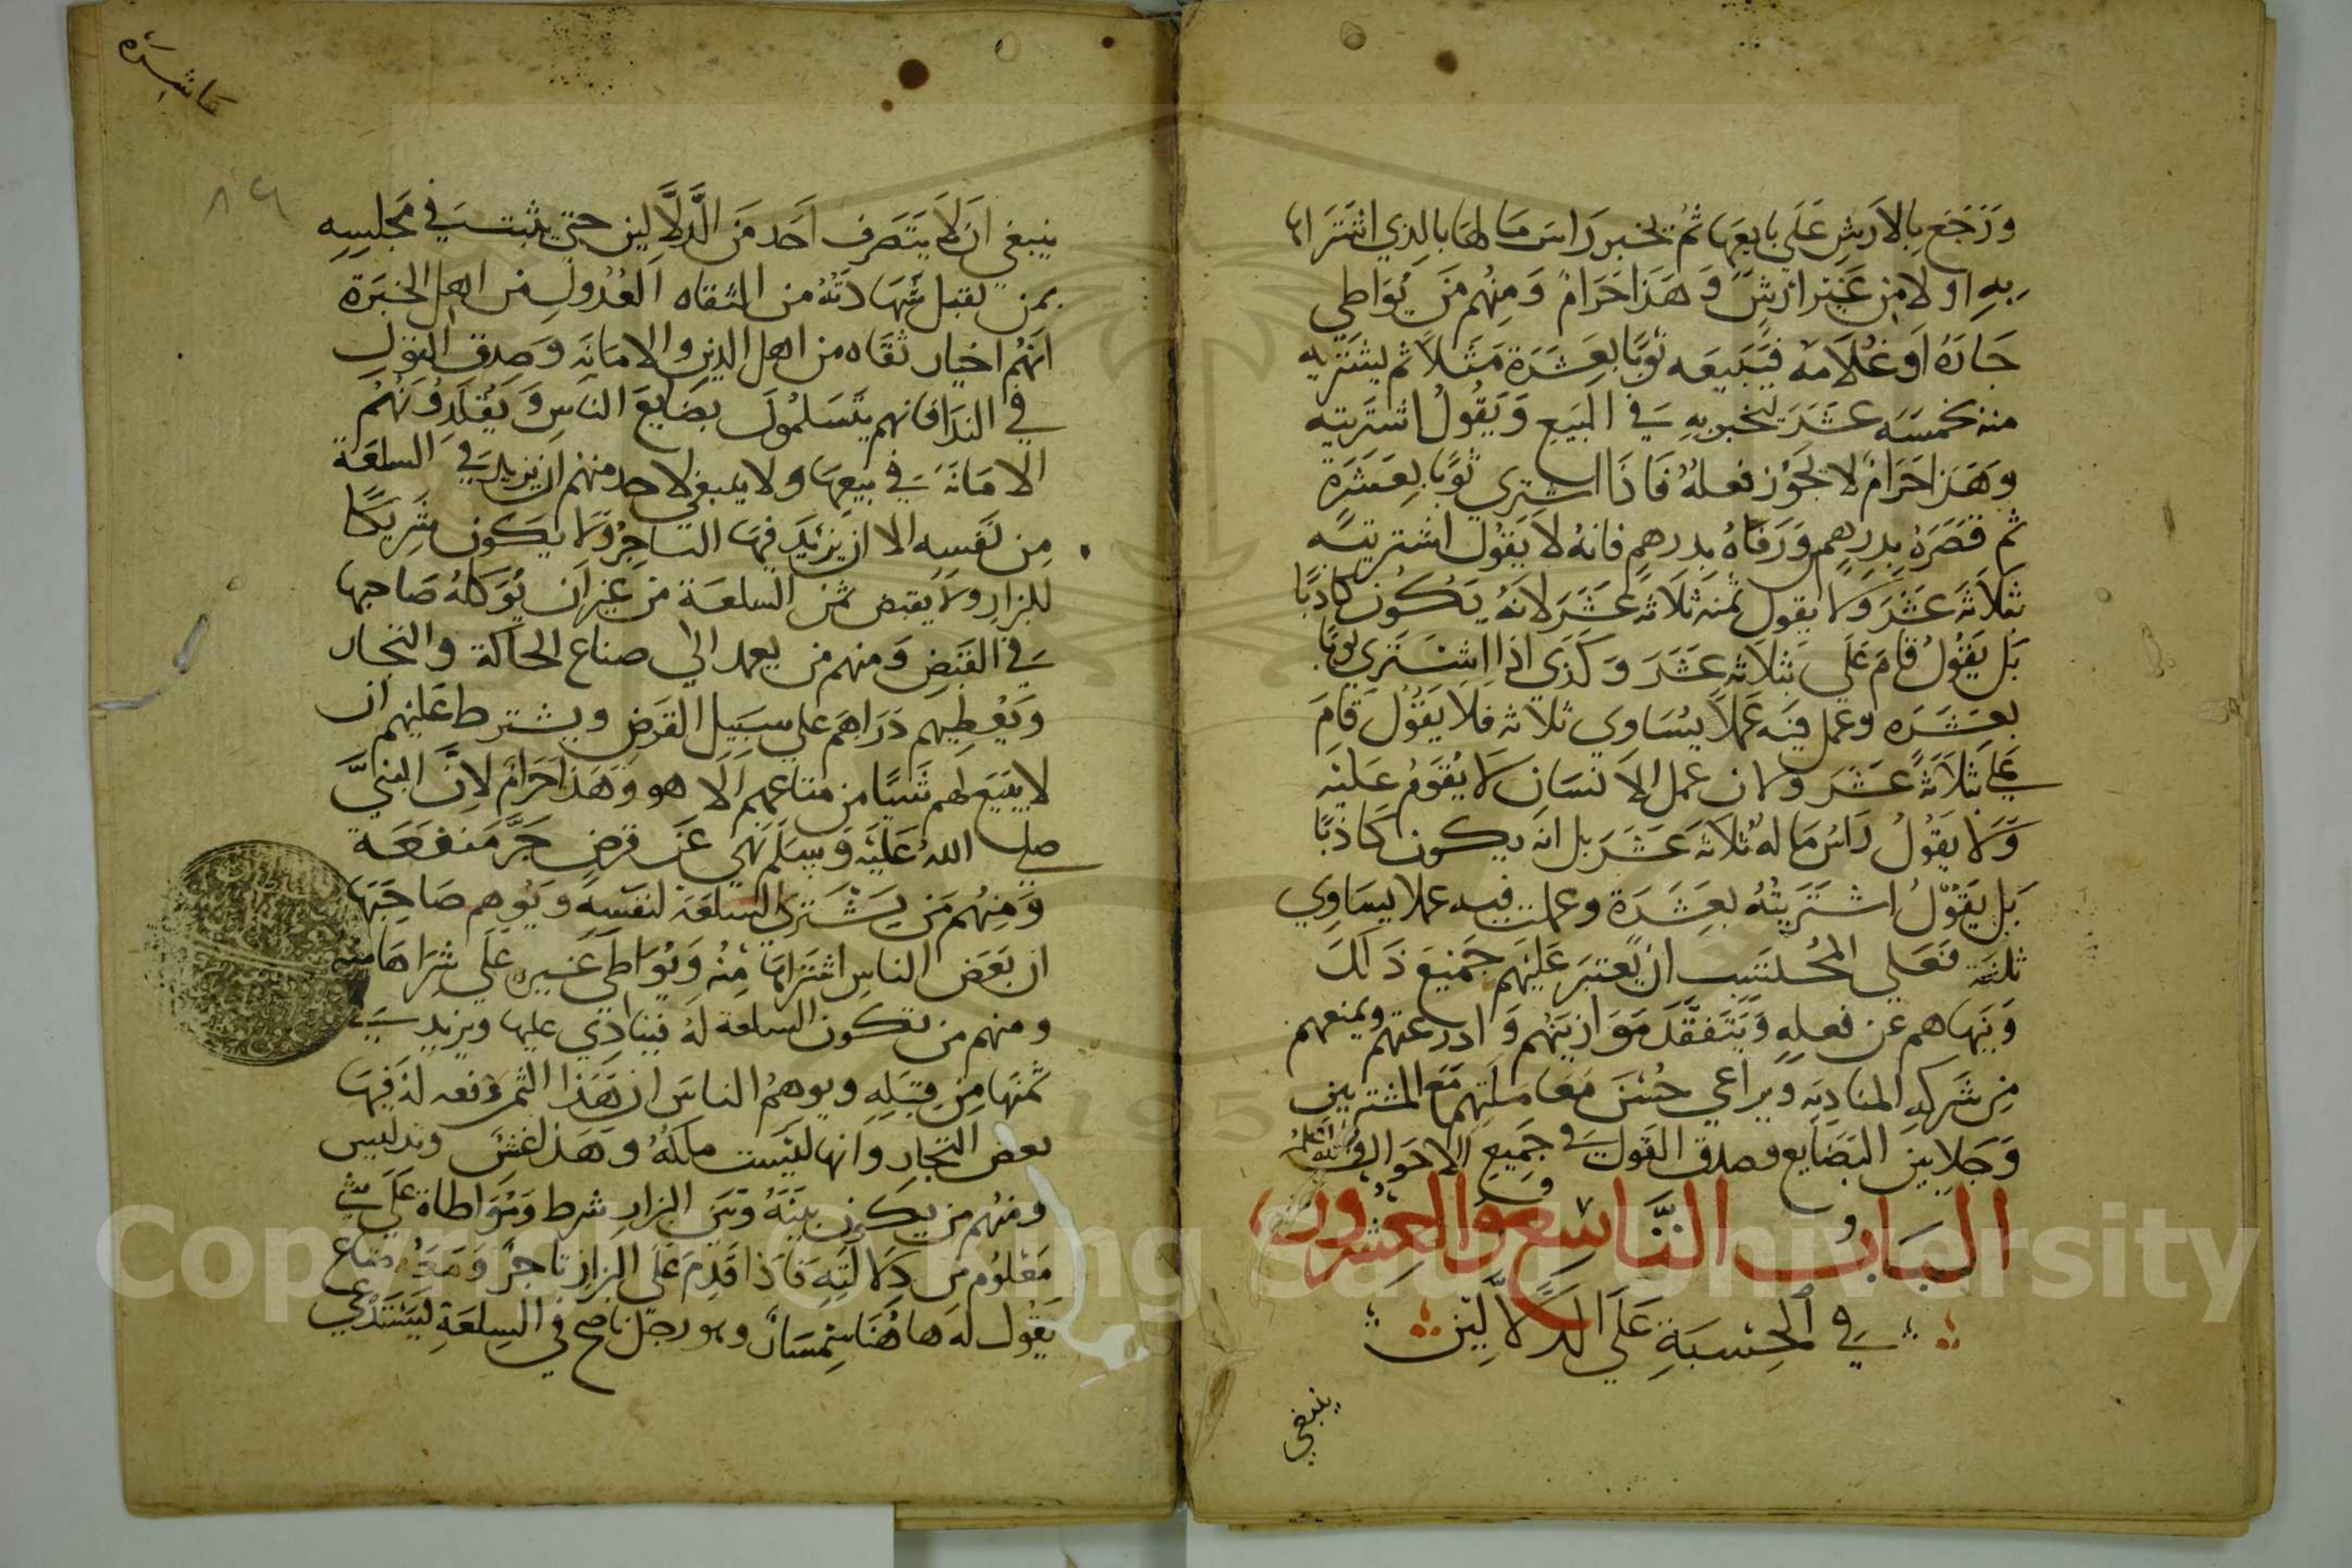 وَرَجَعَ بِالارشِ عَلَي بايعها ثم يخبر راس مَا لهَا بالذي اشتَرَاها
بِهِ اولا مِن غَيْر ارشٍ وَ هَذَا حَرَامٌ وَمِنْهُم مَن يُوَاطِي
جَارَهُ اَو غُلاَمه فيَبيعَه ثوبًا بعِشَرَة مَثَلاً ثم يشتَرِيهِ
منه بخمسَه عشَرَ ليخبر بهِ في البَيعِ وَيَقُولُ اشتَريته
وهَذا حَرَامٌ لا يجوز فعلهُ فَاذَا اشترى ثوبًا بِعَشَرَة
ثم قصَرَهُ بِدِرهم وَرَفَاهُ بدرهم فانهُ لا يَقُول اشتريته
بثَلاَثَة عَشَرَ ولا يقول ثمنه ثلاَثَة عَشَرَ لانهُ يَكُون كاذبًا
بَل يَقُولُ قامَ عَلَي بثلاثه عشَرَ وَكذَي اذا اشترَي ثوبًا
بعَشَرَه وعمل فيَه عَمَلاً يُسَاوي ثلاثه فلا يَقُولُ قامَ
علي بثلاثَة عشَر ولان عمل الانسَان لا يُقَومُ عَليْه
وَلا يقُولُ رَاسُ مَا له ثلاثَة عَشَر بل انه يكون كاذبًا
بَل يَقُولُ اشتَرَيتُهُ بعِشَرَة وعملت فيه عملا يسَاوِي
ثلثة فعَلي المُحتسَب ان يعتبَر عَليْهم جَميعَ ذَلكَ
وَيَنهاهم عَن فعلهِ وَيَتَفقَّدَ مَوَازينَهُم وَادرعتهم ويمنعهم
مِن شَركهِ المنادِيَه وَيرَاعي حُسْنَ مَعَامَلتِهم مَع المشترين
وَجَلابين البضَايع وصدق القَول في جَميع الاحَوال والله اعلم
البَابُ التَّاسِع وَالعِشرون
في الحِسبَةِ عَلَي الدَّلاَّلِيْن
ينبغي
عاشره
٨٩
ينبغي ان لاَ يَتَصَرف اَحَد مَن الدَّلاَّلين حتي يثبت في مَجلِسِه
بمن يقبل شَهَادَتهُ من الثقاه العُدُول من اهل الخبرَة
اَنهُم اخيار ثقَاه من اهل الدين والامَانَه وَصِدق القَولِ
في الندا فانهم يتَسَلمُون بضَايعَ الناسِ وَيُقلدُونَهُم
الامَانَه في بَيعِهَا ولا ينبغي لاحد منهم اَن يزيد في السلعَة
مِن نفسِه الا ان يزيد فيهَا التاجرُ ولا يكون شَريكًا
للبزاز ولا يقبض ثمن السلعَة من غير اَن يُوَكلهُ صَاحبها
في القَبَضِ وَمنهم من يعمد الي صناع الحاكة والتجار
وَيُعْطِيهم دَرَاهِمَ علي سَبيل القرَضِ ويشترط عَليهم ان
لا يبيَع لهم شَيئًا من متاعهم اَلا هو وَهَذا حَرَامٌ لانَّ النبيَّ
صلي اللهُ عَلَيْه وَسلم نهَي عَن قرضٍ جَرَّ مَنفعَة
وَمِنهُم مَن يشتَري السلعَة لنفسِه وَيُوهم صَاحِبَهَا
ان بَعَض الناسِ اشتَراهَا مِنْهُ وَيُوَاطي غيرهِ عَلي شِرَاهَا منه
ومنهم من تكون السلعة لهُ فينادي عليها ويزيد في
ثمنَها مِن قِبَلِه ويوهمُ الناسَ ان هَذا الثمن دفعه له فيهَا
بعض التجارِ وانها ليْسَت ملكهُ وهَذا غشٌّ وتدليس
ومنهُم من يكون بينَهُ وَبَين البزازِ شرط وَمُوَاطاة عَلَي شي
مَعْلوُم من دلالَتِه فَاذَا قدِمَ عَلَي البزازِ تاجرٌ وَمَعَهُ متاع
يَقُول لهَ هَا هُنَا سِمسَارٌ وهو رجل ناصح في السِلعَة ليَستَدعِي